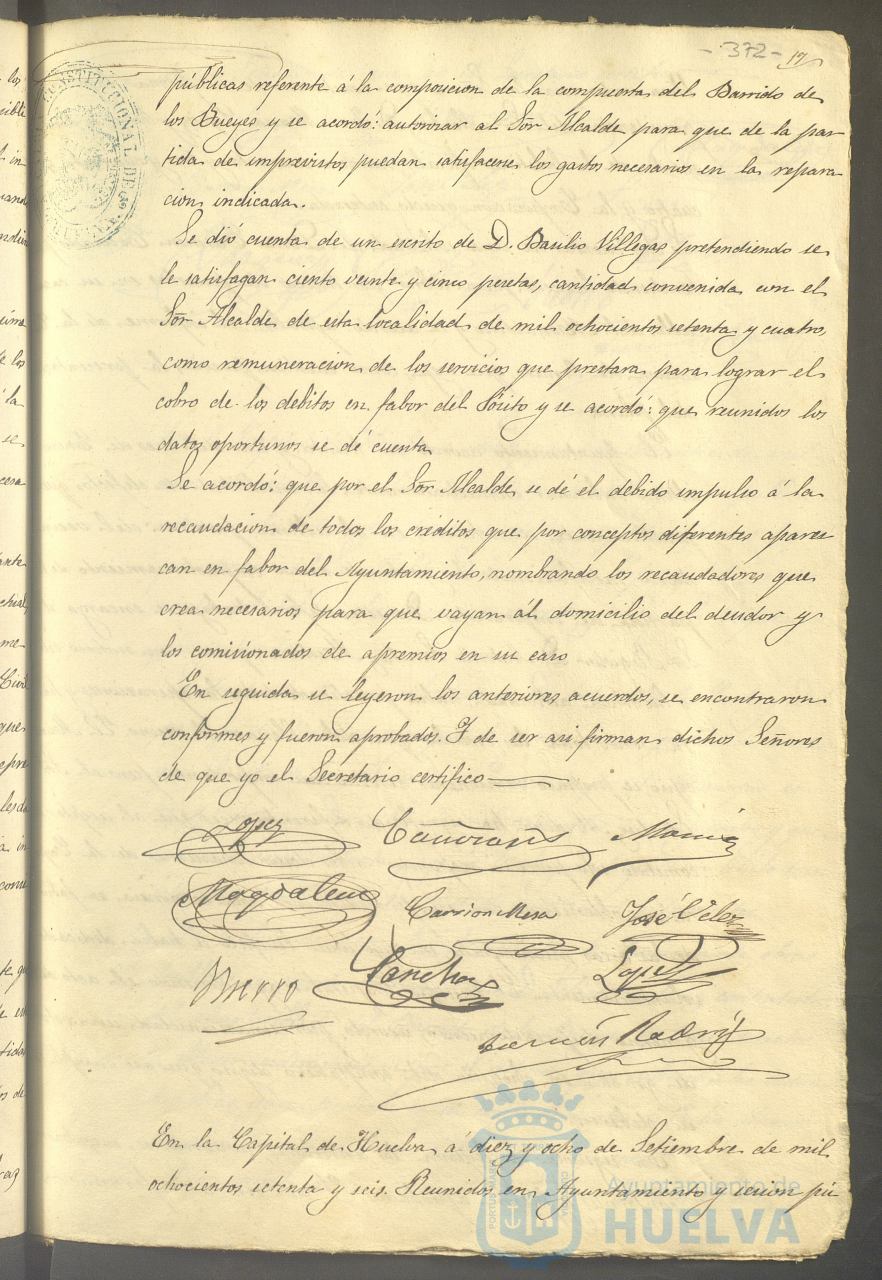 - 372 -
públicas referente á la composicion de la compuerta del Barrido de
los Bueyes y se acordó: autorizar al Sõr Alcalde para que de la par-
tida de imprevistos puedan satisfacerse los gastos necesarios en la repara-
cion indicada.
Se dió cuenta de un escrito de D. Basilio Villegas pretendiendo se
le satisfagan ciento veinte y cinco pesetas, cantidad convenida con el
Sõr Alcalde de esta localidad de mil ochocientos setenta y cuatro,
como remuneracion de los servicios que prestara para lograr el
cobro de los debitos en fabor del Pósito y se acordó: que reunidos los
datos oportunos se dé cuenta
Se acordó: que por el Sõr Alcalde se dé el debido impulso á la
recaudacion de todos los créditos que por conceptos diferentes aparez
can en fabor del Ayuntamiento, nombrando los recaudadores que
crea necesarios para que vayan ál domicilio del deudor y
los comisionados de apremios en su caso
En seguida se leyeron los anteriores acuerdos, se encontraron
conformes y fueron aprobados. Y de ser asi firman dichos Señores
de que yo el Secretario certifico
Lopez
Magdalena
Carrion Mesa
José Velez
Sanchez
Lopez
En la Capital de Huelva á diez y ocho de Setiembre de mil
ochocientos setenta y seis. Reunidos en Ayuntamiento y sesion pú
Ayuntamiento de
HUELVA